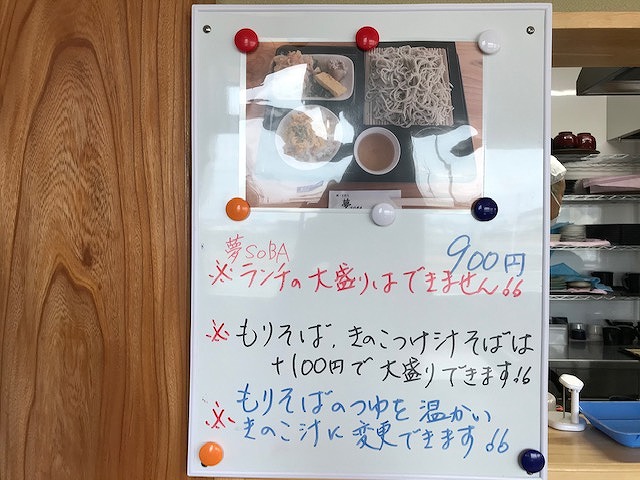 夢
夢SOBA
900円
※ランチの大盛りはできません!!
※もりそば、きのこつけ汁そばは
+100円で大盛りできます!!
※もりそばのつゆを温かい
きのこ汁に変更できます!!